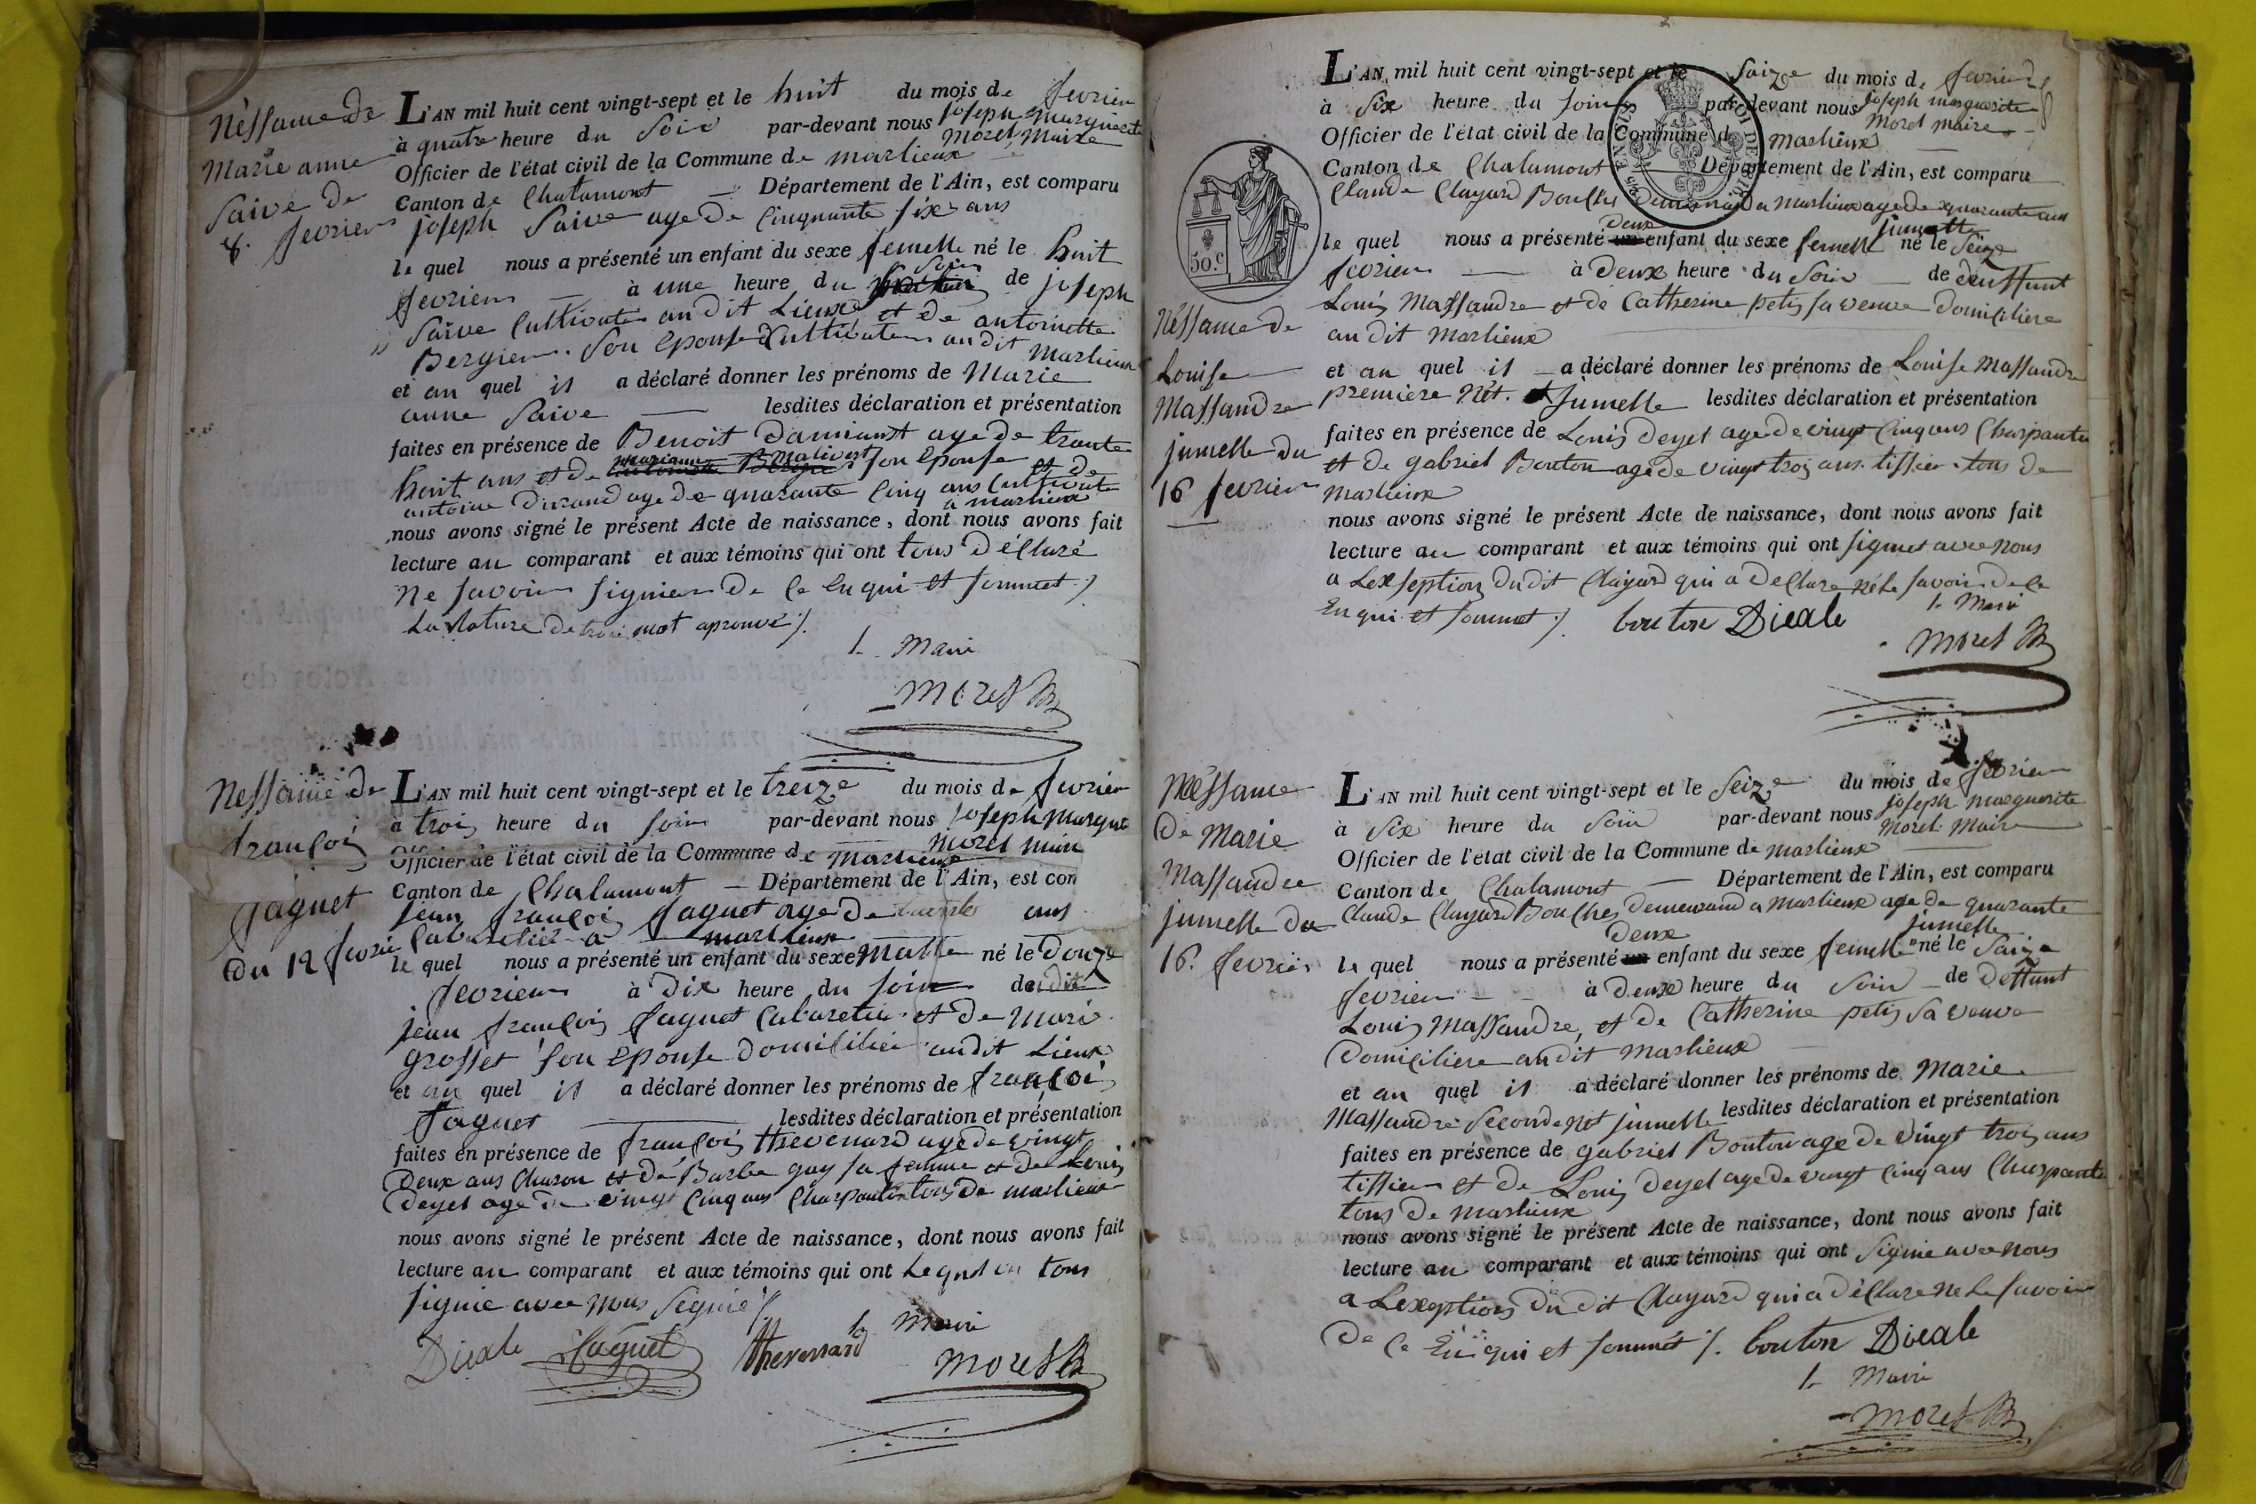 Nèssame de
Marie anne
Saive de
8. fevrier
L'AN mil huit cent vingt-sept et le huit du mois de fevrier
à quatre heure du Soir par-devant nous joseph marguerite
morel Maire
Officier de l'état civil de la Commune de marlieux
Canton de Chalamont Département de l'Ain, est comparu
joseph Saive age de Cinquante six ans
le quel nous a présenté un enfant du sexe femelle né le huit
fevrier à une heure du soir de joseph
Saive Cultivateur audit Lieux et de antoinette
Bergier Son Epouse Cultivateur audit Marlieux
et au quel il a déclaré donner les prénoms de Marie
anne Saive lesdites déclaration et présentation
faites en présence de Benoit Damians age de trante
huit ans et de mariane Malivert son Epouse et de
antoine Durand age de quarante Cinq ans Cultivate
a marlieux
nous avons signé le présent Acte de naissance, dont nous avons fait
lecture au comparant et aux témoins qui ont tous Déclaré
Ne savoir signier De Ce Enqui et sommet ./.
La Rature De trois mot aprouvé ./.
le Maire
morel
Nessame de
françois
Jaquet
du 12 fevrie
L'AN mil huit cent vingt-sept et le treize du mois de fevrier
à trois heure du soir par-devant nous joseph margue
morel maire
Officier de l'état civil de la Commune de Marlieux
Canton de Chalamont Département de l'Ain, est com
jean françois jaquet age de trente ans
Cabaretier a marlieux
le quel nous a présenté un enfant du sexe Malle né le Douze
fevrier à Dix heure du soir dudit
jean françois jaquet Cabaretie et de Marie
grosset son Epouse Domicilié audit Lieux
et au quel il a déclaré donner les prénoms de françois
jaquet lesdites déclaration et présentation
faites en présence de françois thevenard age de vingt
Deux ans Charon et de Barbe guy sa femme et de Louis
Deyel age de vingt Cinq ans Charpantier tous de marlieux
nous avons signé le présent Acte de naissance, dont nous avons fait
lecture au comparant et aux témoins qui ont Lequel on tous
signie avec nous Segnié ./.
le Maire
Dieale Jaquet thevenard
morel
50.c
Nessame de
Louise
Massandre
jumelle du
16 fevrier
L'AN mil huit cent vingt-sept et le Saize du mois de fevrier
à Six heure du soir par-devant nous joseph marguerite
Morel maire
Officier de l'état civil de la Commune de Marlieux
Canton de Chalamont Département de l'Ain, est comparu
Claude Clayard Boucher Demeurand a Marlieux age de quarante ans
le quel nous a présenté Deux enfant du sexe femelle jumelle né le Seize
fevrier à Deux heure du Soir de deuffunt
Louis Massandre et de Catherine petis sa veuve Domiciliere
au dit Marlieux
et au quel il a déclaré donner les prénoms de Louise Massandre
premiere Nét. jumelle lesdites déclaration et présentation
faites en présence de Louis deyel age de vingt Cinq ans Charpantie
et de gabriel Bouton age de vingt trois ans. tissier tous de
Marlieux
nous avons signé le présent Acte de naissance, dont nous avons fait
lecture au comparant et aux témoins qui ont signet avec nous
a Lexseption Dudit Clayard qui a Declare ne Le savoir De Ce
Enqui et sommet ./. bouton Dieale
le Maire
morel
Nèssame
De Marie
Massandre
jumelle du
16. fevrier
L'AN mil huit cent vingt-sept et le Seize du mois de fevrier
à Six heure du Soir par-devant nous joseph marguerite
Morel Maire
Officier de l'état civil de la Commune de marlieux
Canton de Chalamont Département de l'Ain, est comparu
Claude Clayard Boucher Demeurand a Marlieux age de quarante
le quel nous a présenté deux enfant du sexe femelle jumelle né le Saize
fevrier à Deux heure du Soir de Deffunt
Louis Massandre, et de Catherine petis Sa veuve
Domiciliere audit Marlieux
et au quel il a déclaré donner les prénoms de Marie
Massandre Seconde Net jumelle lesdites déclaration et présentation
faites en présence de gabriel Bouton age de vingt trois ans
tissier et de Louis deyel age de vingt Cinq ans Charpantie
tous De Marlieux
nous avons signé le présent Acte de naissance, dont nous avons fait
lecture au comparant et aux témoins qui ont Signie avec nous
a Lexseption du dit Clayard qui a Déclare ne Le savoir
De Ce Enqui et sommét ./. bouton Dieale
le Maire
morel